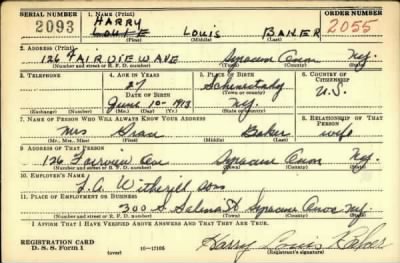 SERIAL NUMBER 1. NAME (Print) ORDER NUMBER
2093 HARRY LOUIS BAKER 2055
(First) (Middle) (Last)
2. ADDRESS (Print)
126 FAIRVIEW AVE Syracuse Onon N.Y.
(Number and street or R. F. D. number) (Town) (County) (State)
3. TELEPHONE 4. AGE IN YEARS 5. PLACE OF BIRTH 6. COUNTRY OF CITIZENSHIP
27 Schenectady
DATE OF BIRTH (Town or county)
June-10-1913 N.Y. U.S.
(Exchange) (Number) (Mo.) (Day) (Yr.) (State or country)
7. NAME OF PERSON WHO WILL ALWAYS KNOW YOUR ADDRESS 8. RELATIONSHIP OF THAT PERSON
Mrs Grace Baker wife
(Mr., Mrs., Miss) (First) (Middle) (Last)
9. ADDRESS OF THAT PERSON
126 Fairview Ave Syracuse Onon N.Y.
(Number and street or R. F. D. number) (Town) (County) (State)
10. EMPLOYER'S NAME
L.A. Witherill Sons
11. PLACE OF EMPLOYMENT OR BUSINESS
300 S Salina St Syracuse Onon N.Y.
(Number and street or R. F. D. number) (Town) (County) (State)
I AFFIRM THAT I HAVE VERIFIED ABOVE ANSWERS AND THAT THEY ARE TRUE.
REGISTRATION CARD
D. S. S. Form 1 (over) 16-17105 Harry Louis Baker
(Registrant's signature)